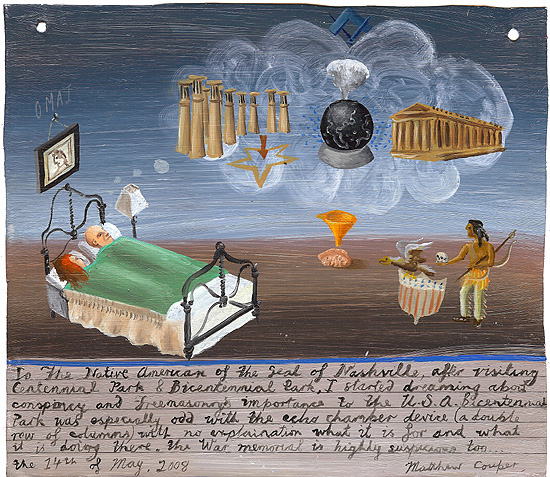 OMAI
To The Native American of the Seal of Nashville, after visiting
Centennial Park & Bicentennial Park, I started dreaming about
conspiracy and Freemasonry's importance to the U.S.A. Bicentennial
Park was especially odd with the echo chamber device (a double
row of columns) with no explaination what it is for and what
it is doing there. The War memorial is highly suspicious too...
the 14th of May, 2008
Matthew Couper